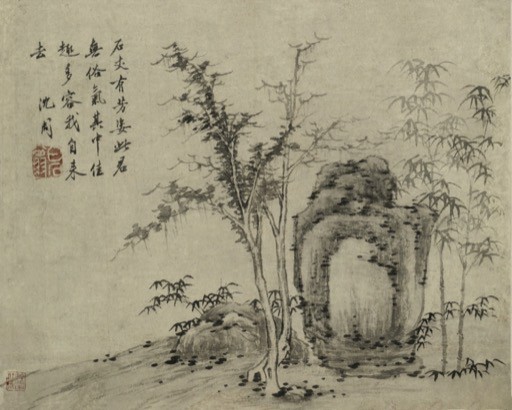 石丈有芳姿此君
無俗氣其中佳
趣多容我自来
去 沈周